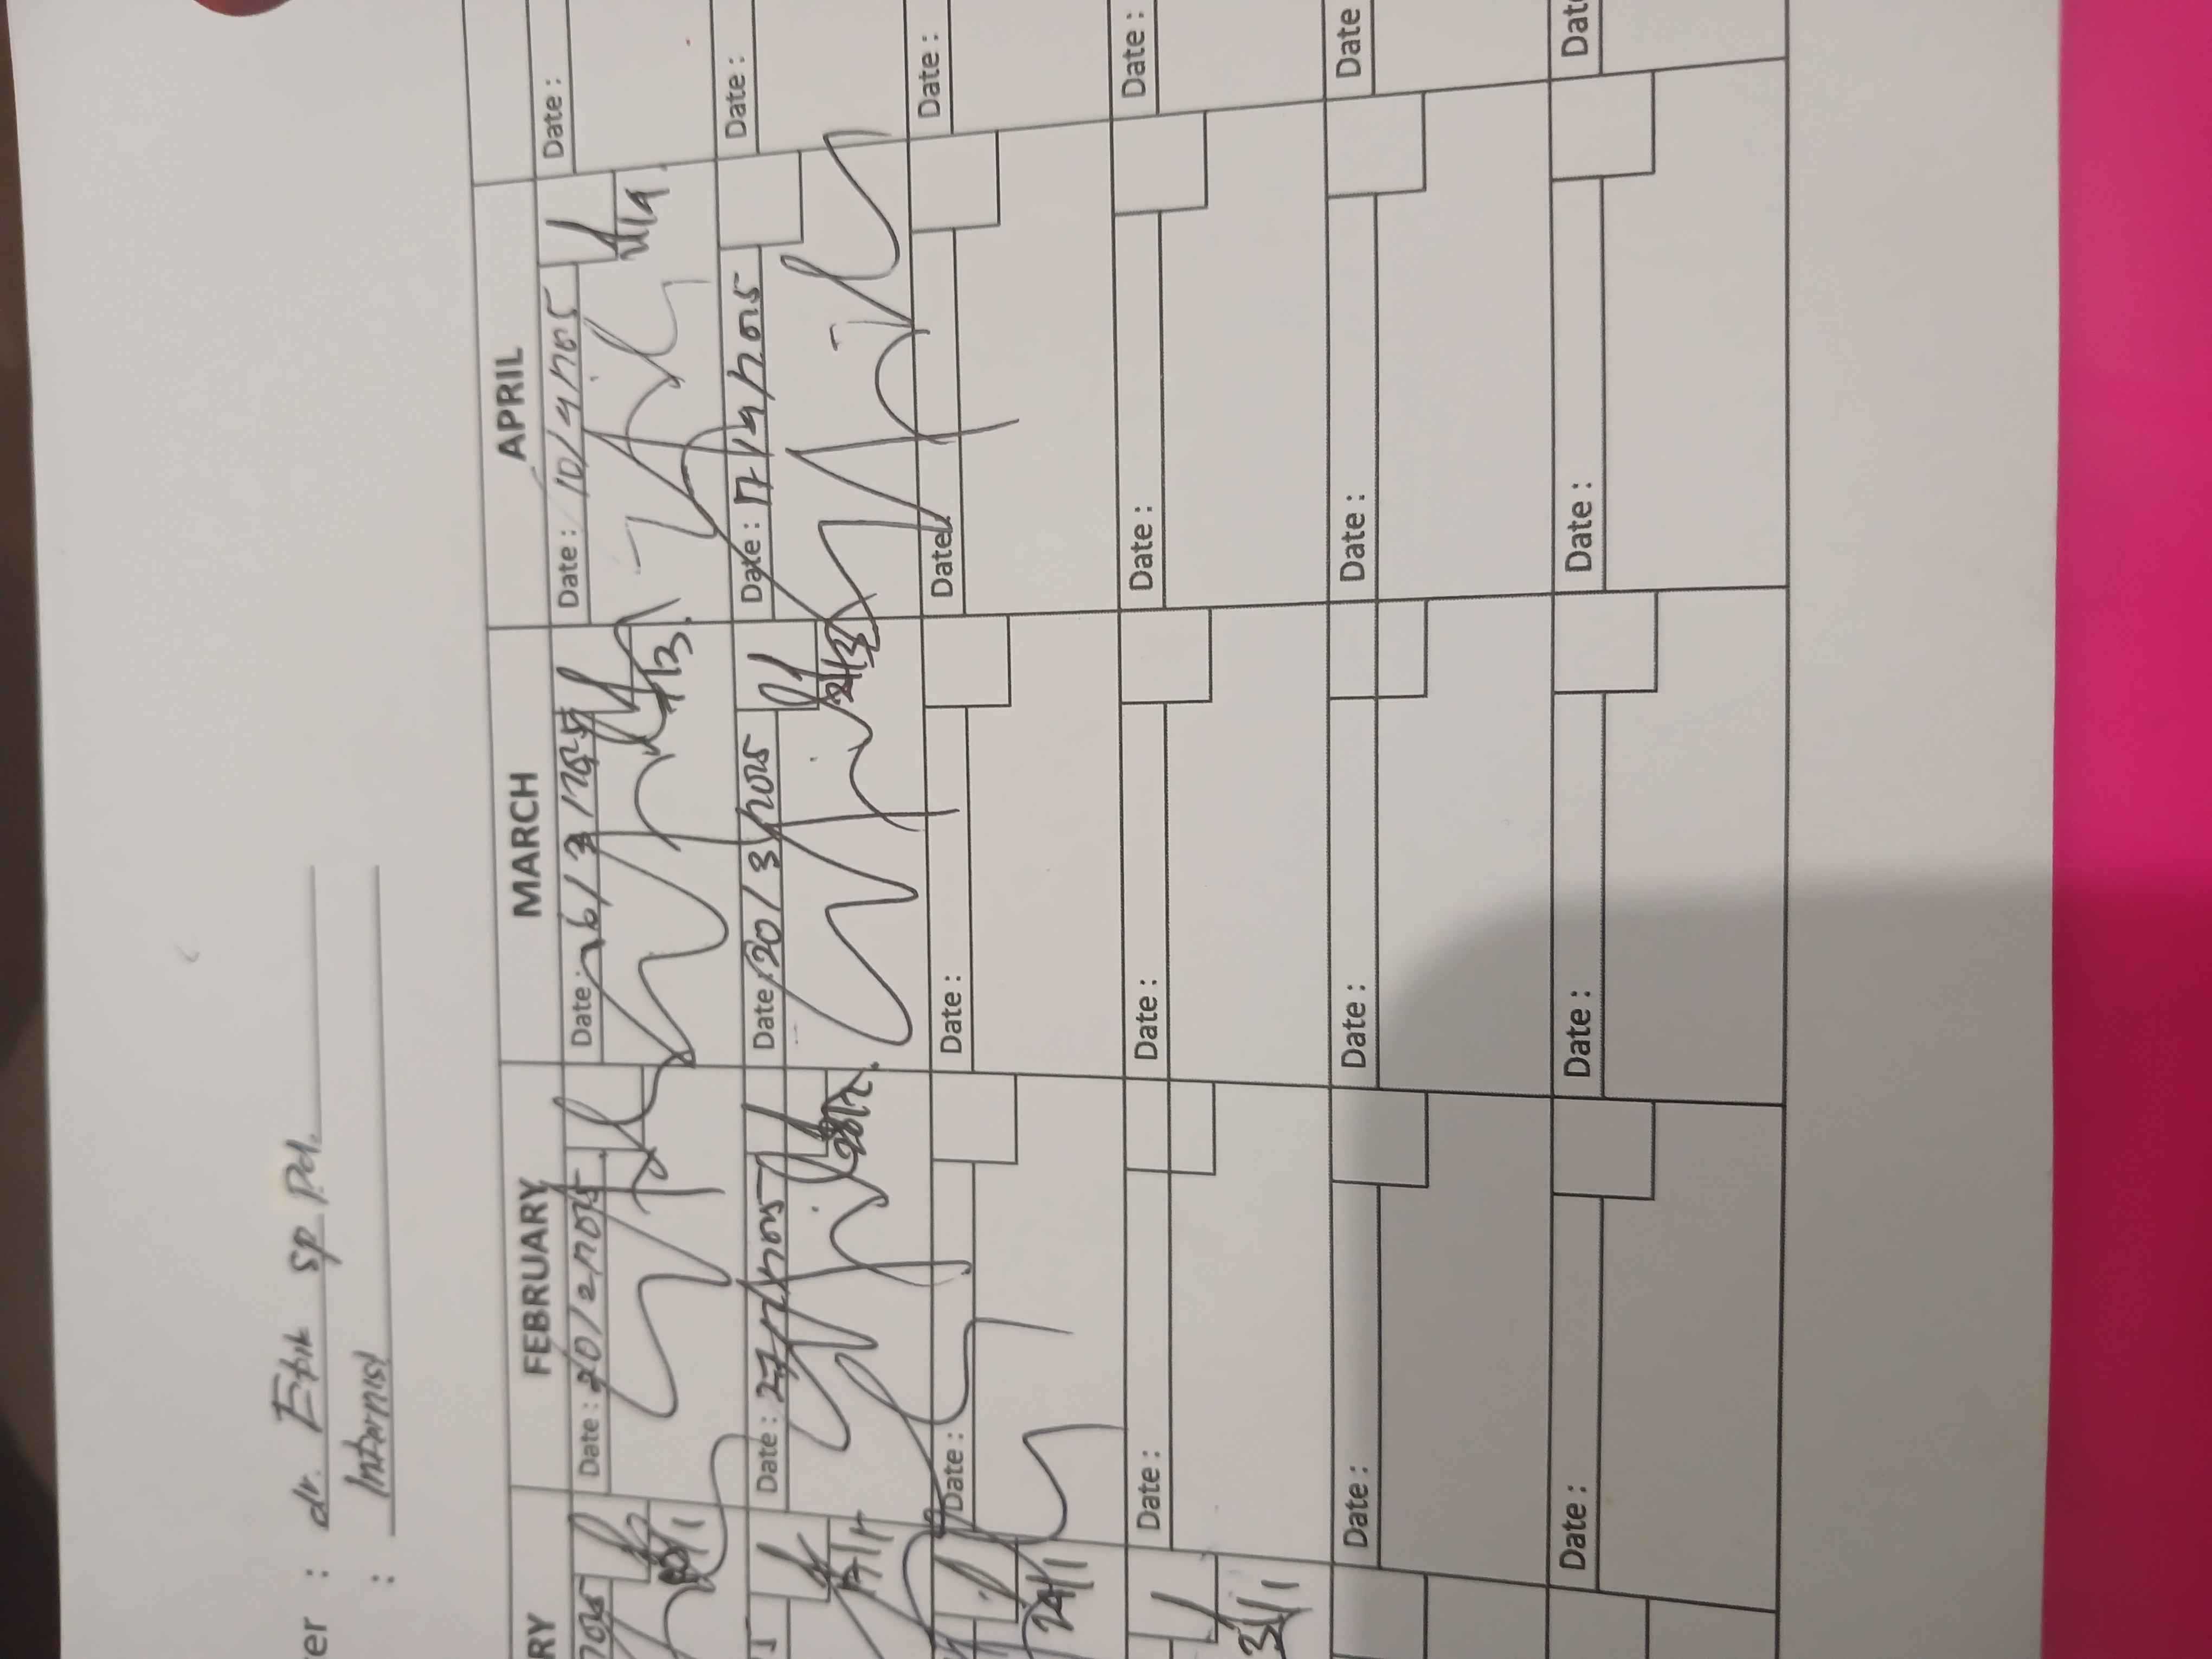 er : dr. Erik sp Pd.
: Internist
RY FEBRUARY MARCH APRIL
2025 Date : 20/2/2025 Date : 6/3/2025 Date : 10/4/2025 Date :
7/3. 11/4
5 Date : 27/2/2025 Date : 20/3/2025 Date : 17/4/2025 Date :
17/1 28/2. 21/3
Date : Date : Date Date :
24/1
Date : Date : Date : Date :
31/1
Date : Date : Date : Date
Date : Date : Date : Dat